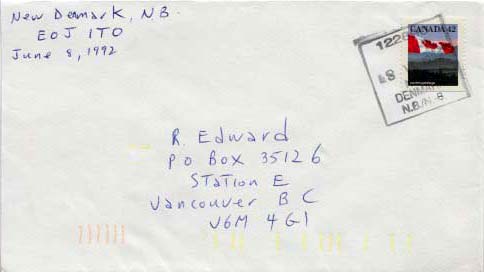 New Denmark, NB.
EOJ 1TO
June 8, 1992
CANADA 42
DENMA
N.B./N.-B
R. Edward
PO Box 35126
Station E
Vancouver BC
V6M 4G1